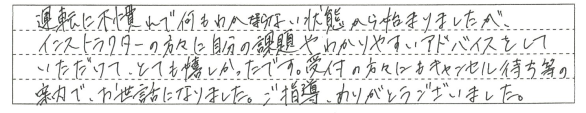 運転に不慣れで何もわからない状態から始まりましたが、
インストラクターの方々に自分の課題やわかりやすいアドバイスをして
いただけて、とても嬉しかったです。受付の方にもキャンセル待ち等の
案内で、お世話になりました。ご指導、ありがとうございました。